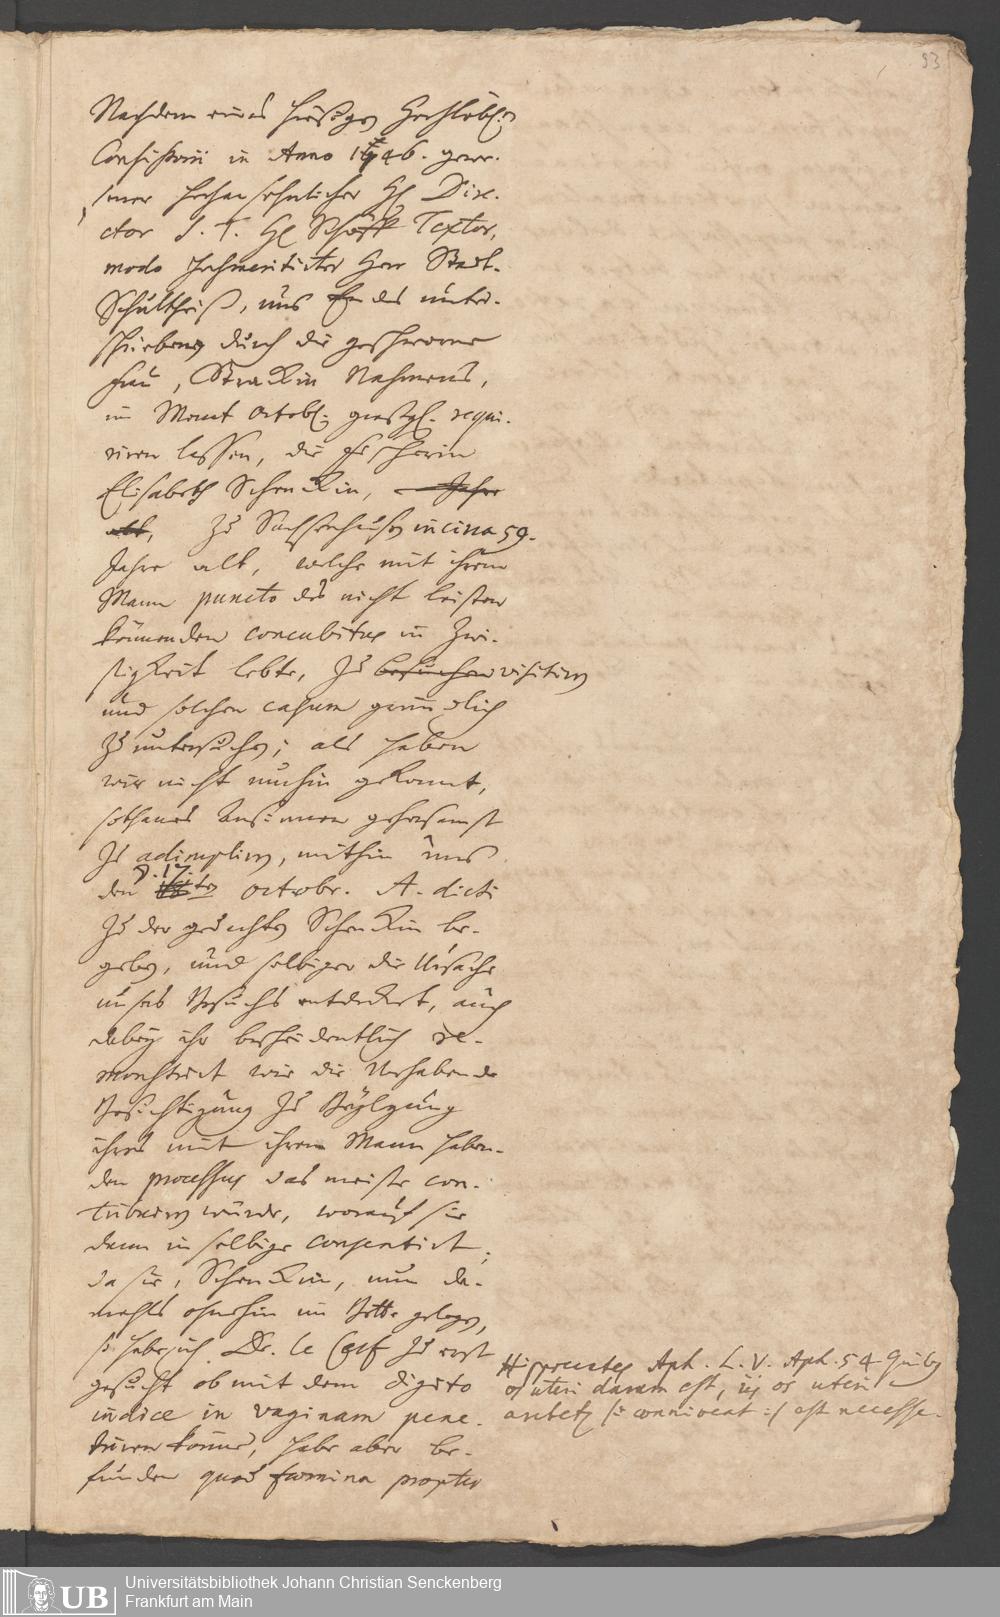 93
Nachdem eines hießigen Hochlöbl:n
Consistorii in Anno 1746. gewe-
sener hochansehnlicher H Dire-
ctor S. T. H Schöff Textor,
modo hochmeritirter Herr Stadt-
Schultheiß, uns Endes unter-
schriebenen durch die geschworne
Frau, Strackin Nahmens,
im Monat Octobr: requi-
riren lassen, die Fischerin
Elisabeth Schenckin, Jahre
alt, zu Sachsenhausen in circa 59.
Jahre alt, welche mit ihrem
Mann puncto des nicht leisten
könnenden concubitus in Zwi-
stigkeit lebte, zu besuchen visitiren
und solchen casum gründlich
zu untersuchen; als haben
wir nicht umhin gekonnt,
sothanes Ansinnen gehorsamst
zu adimpliren, mithin uns
den d. 17. ten Octobr. A. dicti
zu der gedachten Schenckin be-
geben, und selbiger die Ursache
unsers Besuchs entdecket, auch
dabey ihr bescheidentlich re-
monstrirt wie die Vorhabende
Besichtigung zu Beylegung
ihres mit ihrem Mann haben-
den processus das meiste con-
tribuiren würde, worauf sie
dann in selbige consentirt;
da sie, Schenckin, nun da-
mahls ohnehin im Bette gelegen,
so habe ich Dr. le Cerf zu erst
gesucht ob mit dem digito
indice in vaginam pene-
triren könne, habe aber be-
funden quod foemina propter
Hippocrates Aph. L. V. Aph. 54 Quibus
os uteri durum est, iis os uteri
arctet /: conniveat :/ est necesse.
Universitätsbibliothek Johann Christian Senckenberg
Frankfurt am Main
UB